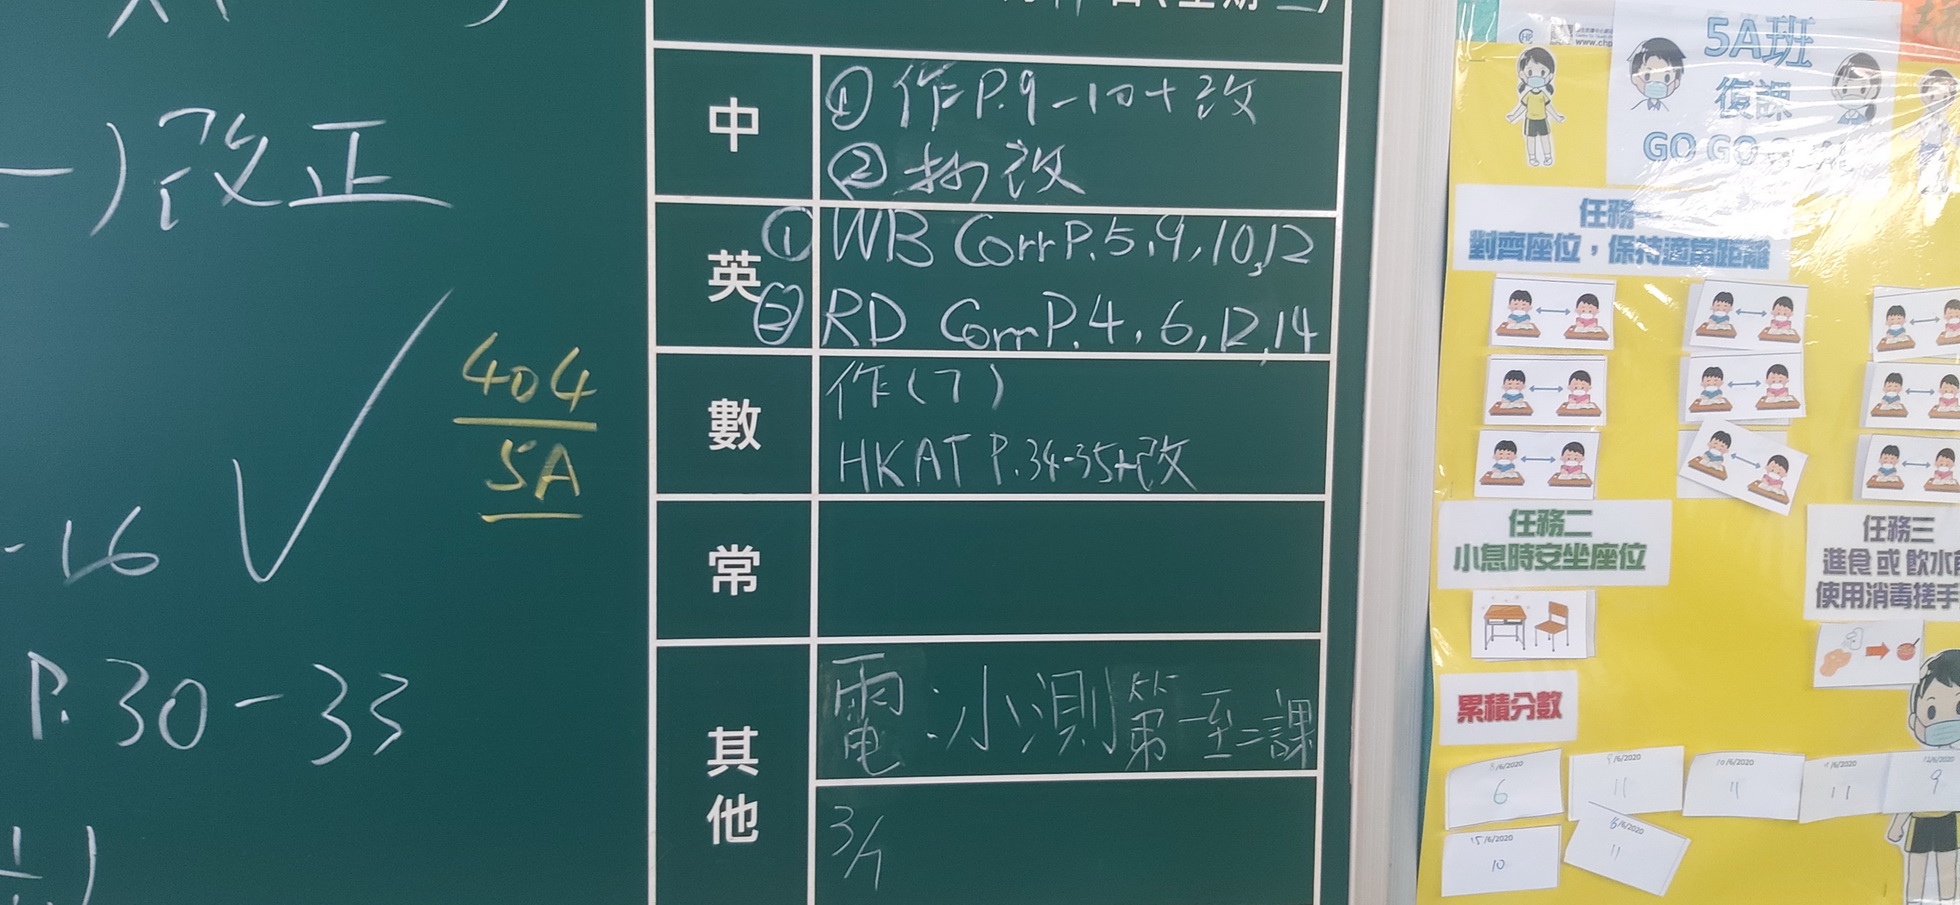 一)改正
404
5A
-16
P.30-33
中
①作P.9-10+改
改
英
①WB Corr P.5,9,10,12
②RD Corr P.4,6,12,14
數
作(7)
HKAT P.34-35+改
常
其他
電:小測第一至二課
3/7
5A班
復課
GO GO
任務一
對齊座位，保持適當距離
任務二
小息時安坐座位
任務三
進食或飲水前
使用消毒搓手
累積分數
6
9/6/2020
11
10/6/2020
11
11/6/2020
11
12/6/2020
9
15/6/2020
10
16/6/2020
11